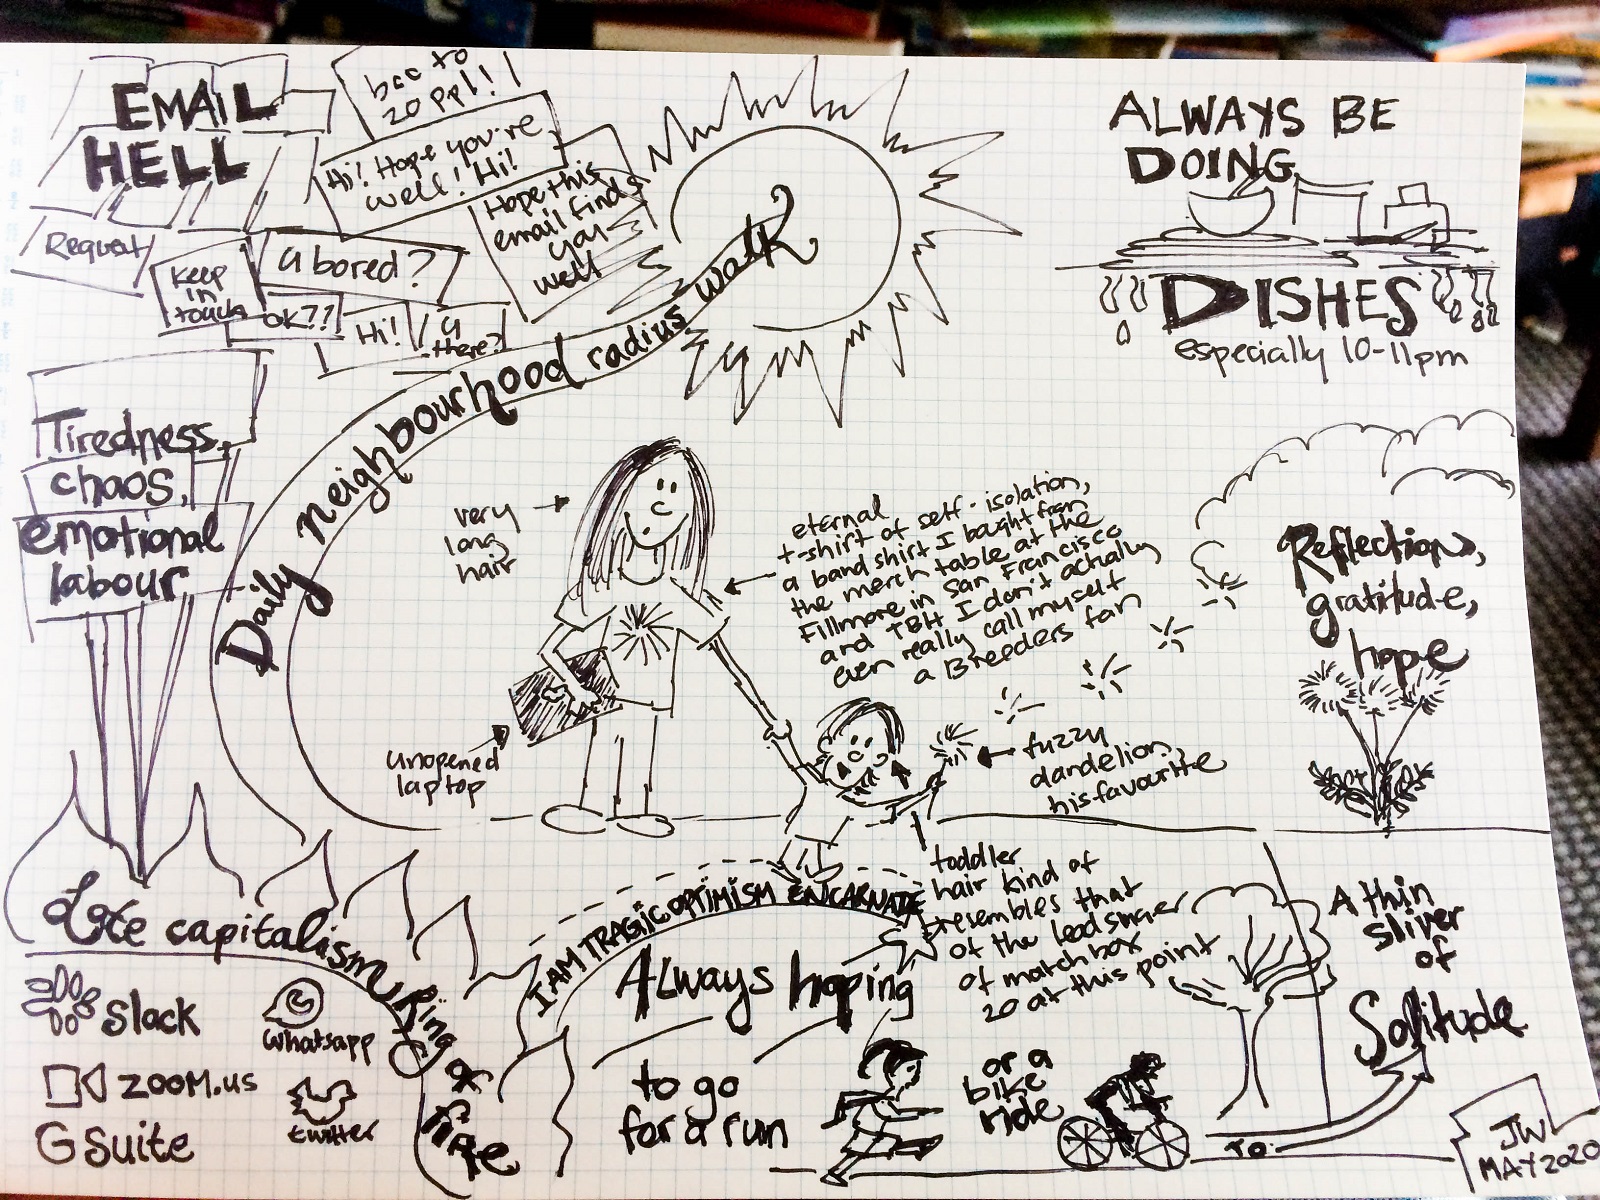 EMAIL
HELL
bcc to
20 ppl!!
Hi! Hope you're
well! Hi!
Hope this
email finds
you
well
Request
Keep
in
touch
U bored?
OK??
Hi!
U
there?
Tiredness,
chaos,
emotional
labour
Daily neighbourhood radius walk
ALWAYS BE
DOING
DISHES
especially 10-11pm
very
long
hair
unopened
laptop
eternal
t-shirt of self-isolation,
a band shirt I bought from
the merch table at the
Fillmore in San Francisco
and TBH I don't actually
even really call myself
a Breeders fan
fuzzy
dandelion,
his favourite
Reflection,
gratitude,
hope
toddler
hair kind of
resembles that
of the lead singer
of matchbox
20 at this point
Late capitalism ring of fire
Slack
Whatsapp
ZOOM.us
twitter
G Suite
I AM TRAGIC OPTIMISM ENCARNATE
Always hoping
to go
for a run
or a
bike
ride
TO
A thin
sliver
of
Solitude
JW
MAY 2020